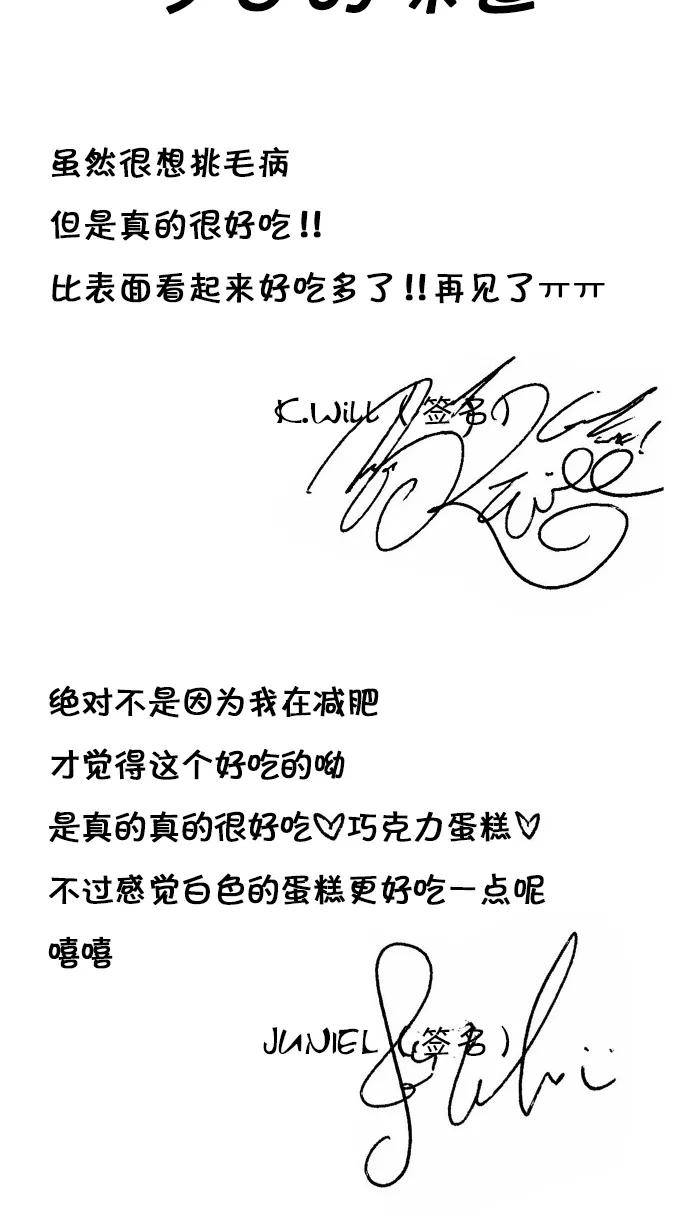 虽然很想挑毛病
但是真的很好吃!!
比表面看起来好吃多了!!再见了ㅠㅠ
K.Will（签名）
绝对不是因为我在减肥
才觉得这个好吃的呦
是真的真的很好吃♡巧克力蛋糕♡
不过感觉白色的蛋糕更好吃一点呢
嘻嘻
JUNIEL（签名）